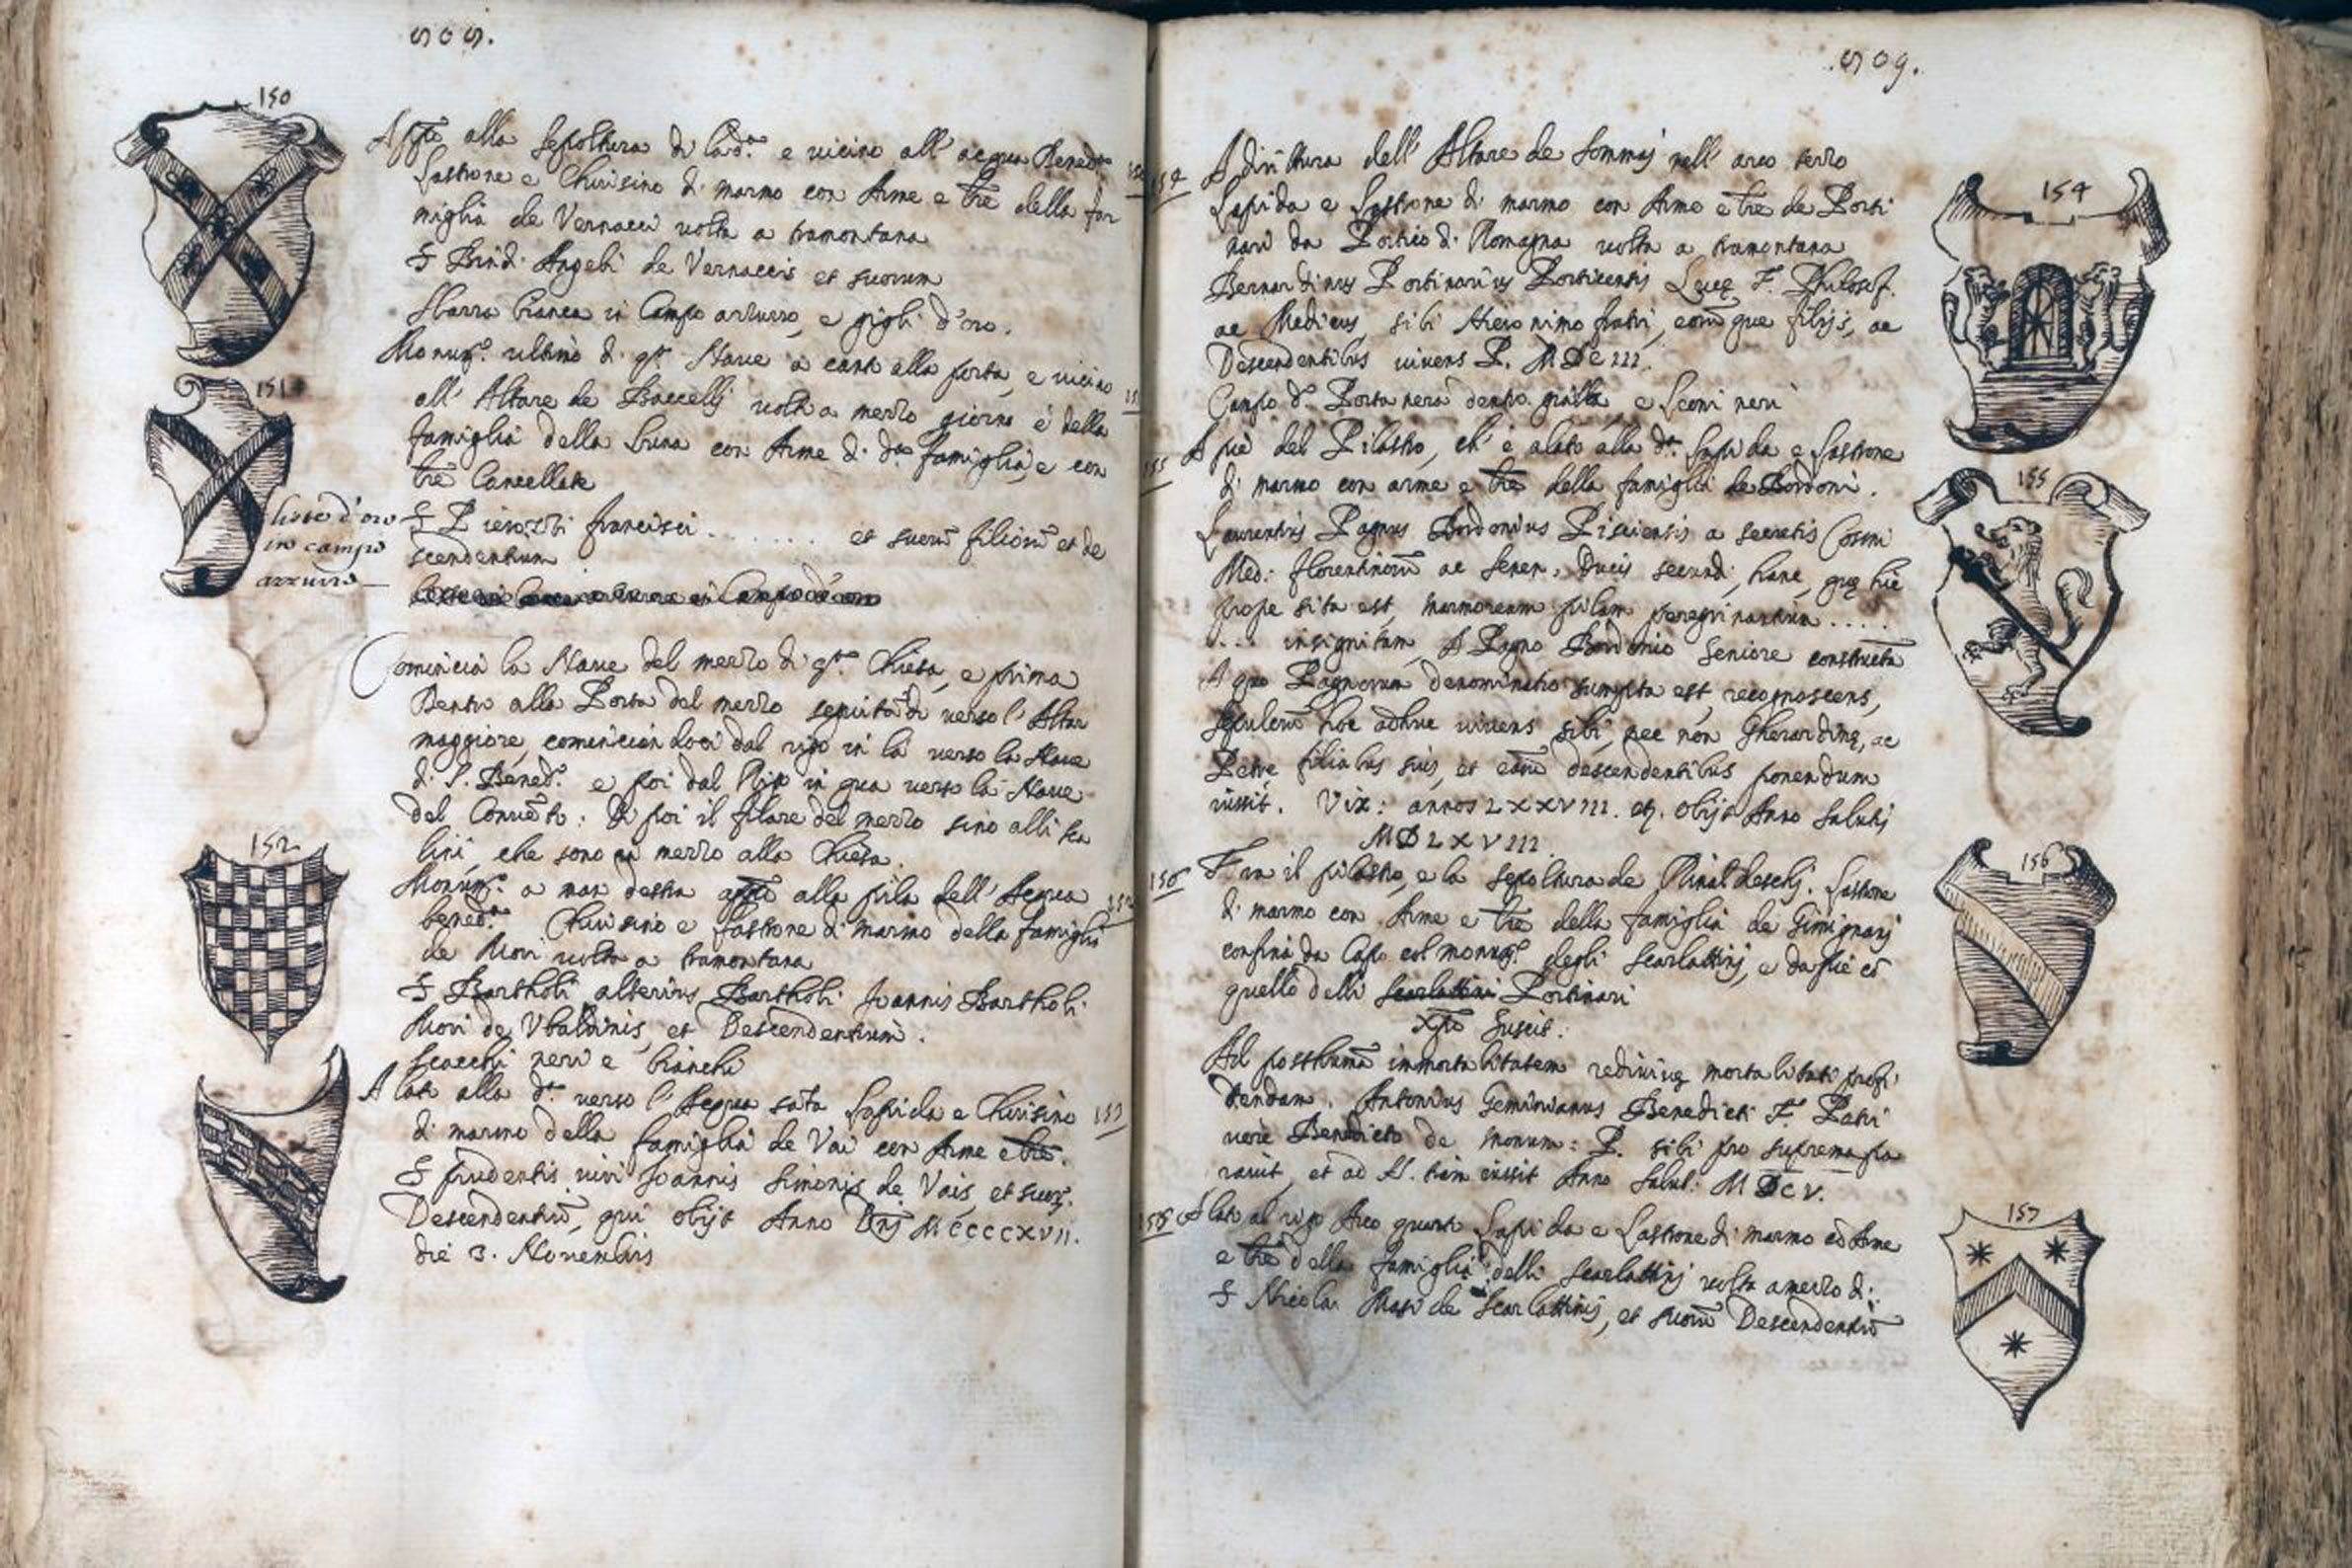 505.
150
Appo alla Sepoltura di lad.a e vicino all' acqua Bened.ta
Lastrone e Chiusino di marmo con Arme e tre della fa
miglia de Vernacci volta a tramontana
S Bind. Angeli de Vernaccis et suorum
Sbarra bianca in Campo azzurro, e gigli d'oro.
Monum.o ultimo di q.ta Nave a canto alla porta, e vicino
all' Altare de Baccelli volto a mezzo giorno è della
famiglia della Luna con Arme di d.a famiglia, e con
tre Cancellate
151
liste d'oro
in campo
azzurro
S francisci ........ et suorū filiorū et de
scendentium
Comincia la Nave del mezzo di q.ta Chiesa, e prima
Dentro alla Porta del mezzo verso l' Altar
maggiore, cominciandoci dal in là verso la Nave
di S. Bened.o e poi dal in qua verso la Nave
del Convēto. Di poi il filare del mezzo sino alli sca
lini, che sono in mezzo alla Chiesa.
152
Monum.o a man destra appo alla pila dell' Acqua
bened.ta Chiusino e Lastrone di marmo della famiglia
de Mori volto a tramontana
S Bartholi alterius Bartholi Joannis Bartholi
Mori de Ubaldinis, et Descendentium.
Scacchi neri e bianchi
A lato alla d.a verso l' Acqua sāta Lapida e Chiusino 153
di marmo della famiglia de Vai con Arme e tre.
S prudentis viri Joannis Simonis de Vais, et suor.
Descendentiū, qui obijt Anno Dn̄i MCCCCXVII.
die 3. Novembris
509.
154
A dirittura dell' Altare de Sommaj nell' arco terzo
Lapida e Lastrone di marmo con Arme e tre de Porti
nari da Portico di Romagna volta a tramontana
Bernardinus Portinarius Porticensis Lucę F. Philosof.
ac Medicus, sibi Hieronimo fratri, eorūque filijs, ac
Descendentibus vivens P. MDCIII.
Campo d. Porta nera dentro gialla e Leoni neri
155
A piè del Pilastro, ch' è alato alla d.a Lapida e Lastrone
di marmo con arme e tre della famiglia de Bordoni.
Laurentius Pagnus Bordonius Pisciensis a secretis Cosmi
Med: florentinorū ac Senen. Ducis secundi, hanc, quę hic
prope sita est, marmoream pilam peregrinantium ....
... insignitam, A Pagno Bordonio Seniore constructā
A quo Pagnorum denominatio sumpta est, recognoscens,
Sepulcrū hoc adhuc vivens sibi, nec non Gherardinę, ac
Petrę filiabus suis, et eorū descendentibus ponendum
iussit. Vix: annos LXXVIII. obijt Anno Salutis
MDLXVIII.
156
Fra il pilastro, e la sepoltura de Rinaldeschj. Lastrone
di marmo con Arme e tre della famiglia de Gimignanj
confina da Capo col monum.o degli Scarlattinj, e da piè cō
quello delli Scarlattini Portinari
Xp̄o Suscit.
Ad posthumā immortalitatem redivivę mortalitati prefi
tendam. Antonius Geminianus Benedicti F. Patri
vere Benedicto de monum: P. sibi pro suprema pa
ravit, et ad iussit Anno Salut: MDCV.
156
157
A lato al Arco quarto Lapida e Lastrone di marmo cō Arme
e tre della famiglia delli Scarlattinj volta a mezzo dì.
S Nicola Masi de Scarlattinis, et suorū Descendentiū